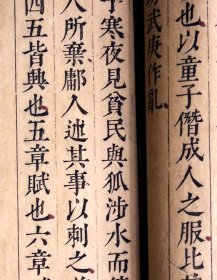 也以童子僭成人之服比
武庚作亂
寒夜見貧民與狐涉水而
人所棄鄘人述其事以刺之
四五皆興也五章賦也六章